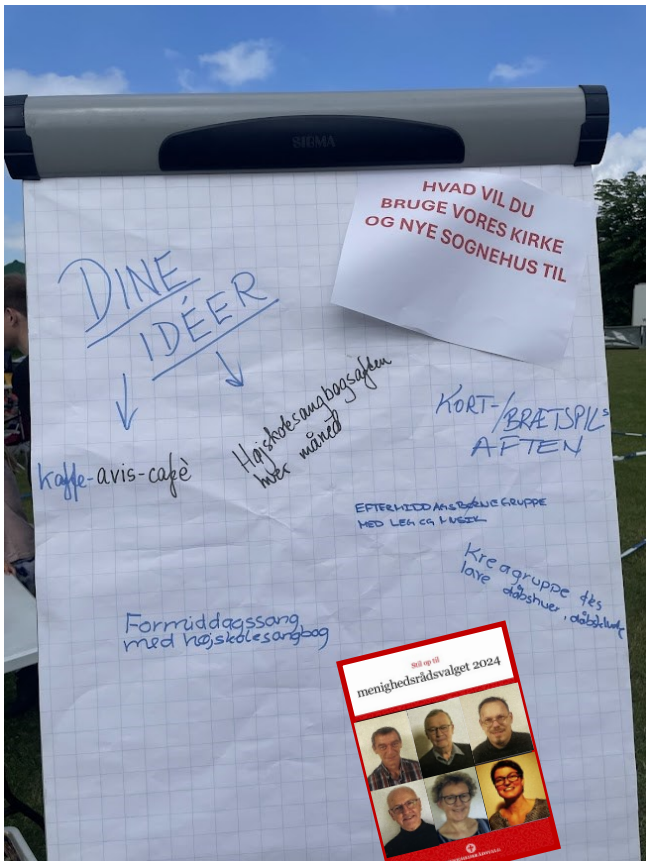 SIGMA
HVAD VIL DU
BRUGE VORES KIRKE
OG NYE SOGNEHUS TIL
DINE
IDÉER
kaffe-avis-cafè
Højskolesangbogsaften
hver måned
KORT-/BRÆTSPILS
AFTEN
EFTERMIDDAGSBØRNEGRUPPE
MED LEG OG MUSIK
Kreagruppe
lave dåbshuer,
Formiddagssang
med højskolesangbog
Stil op til
menighedsrådsvalget 2024